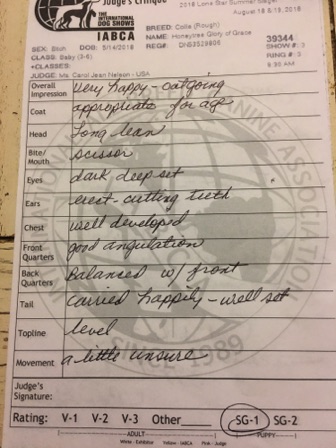 Judge's Critique
THE INTERNATIONAL DOG SHOWS
IABCA
2018 Lone Star Summer Sieger
August 18 & 19, 2018
BREED: Collie (Rough)
NAME: Honeytree Glory of Grace
REG#: DN53529806
39344
SHOW #: 3
RING #: 3
9:30 AM
SEX: Bitch DOB: 5/14/2018
CLASS: Baby (3-6)
+CLASSES:
JUDGE: Ms. Carol Jean Nelson - USA
Overall Impression Very happy - outgoing
Coat appropriate for age
Head Long lean
Bite/Mouth scissor
Eyes dark deep set
Ears erect - cutting teeth
Chest well developed
Front Quarters good angulation
Back Quarters Balanced w/ front
Tail carried happily - well set
Topline level
Movement a little unsure
Judge's Signature:
Rating: V-1 V-2 V-3 Other SG-1 SG-2
ADULT PUPPY
White - Exhibitor Yellow - IABCA Pink - Judge
INTERNATIONAL CANINE ASSOCIATION
SINCE 1989